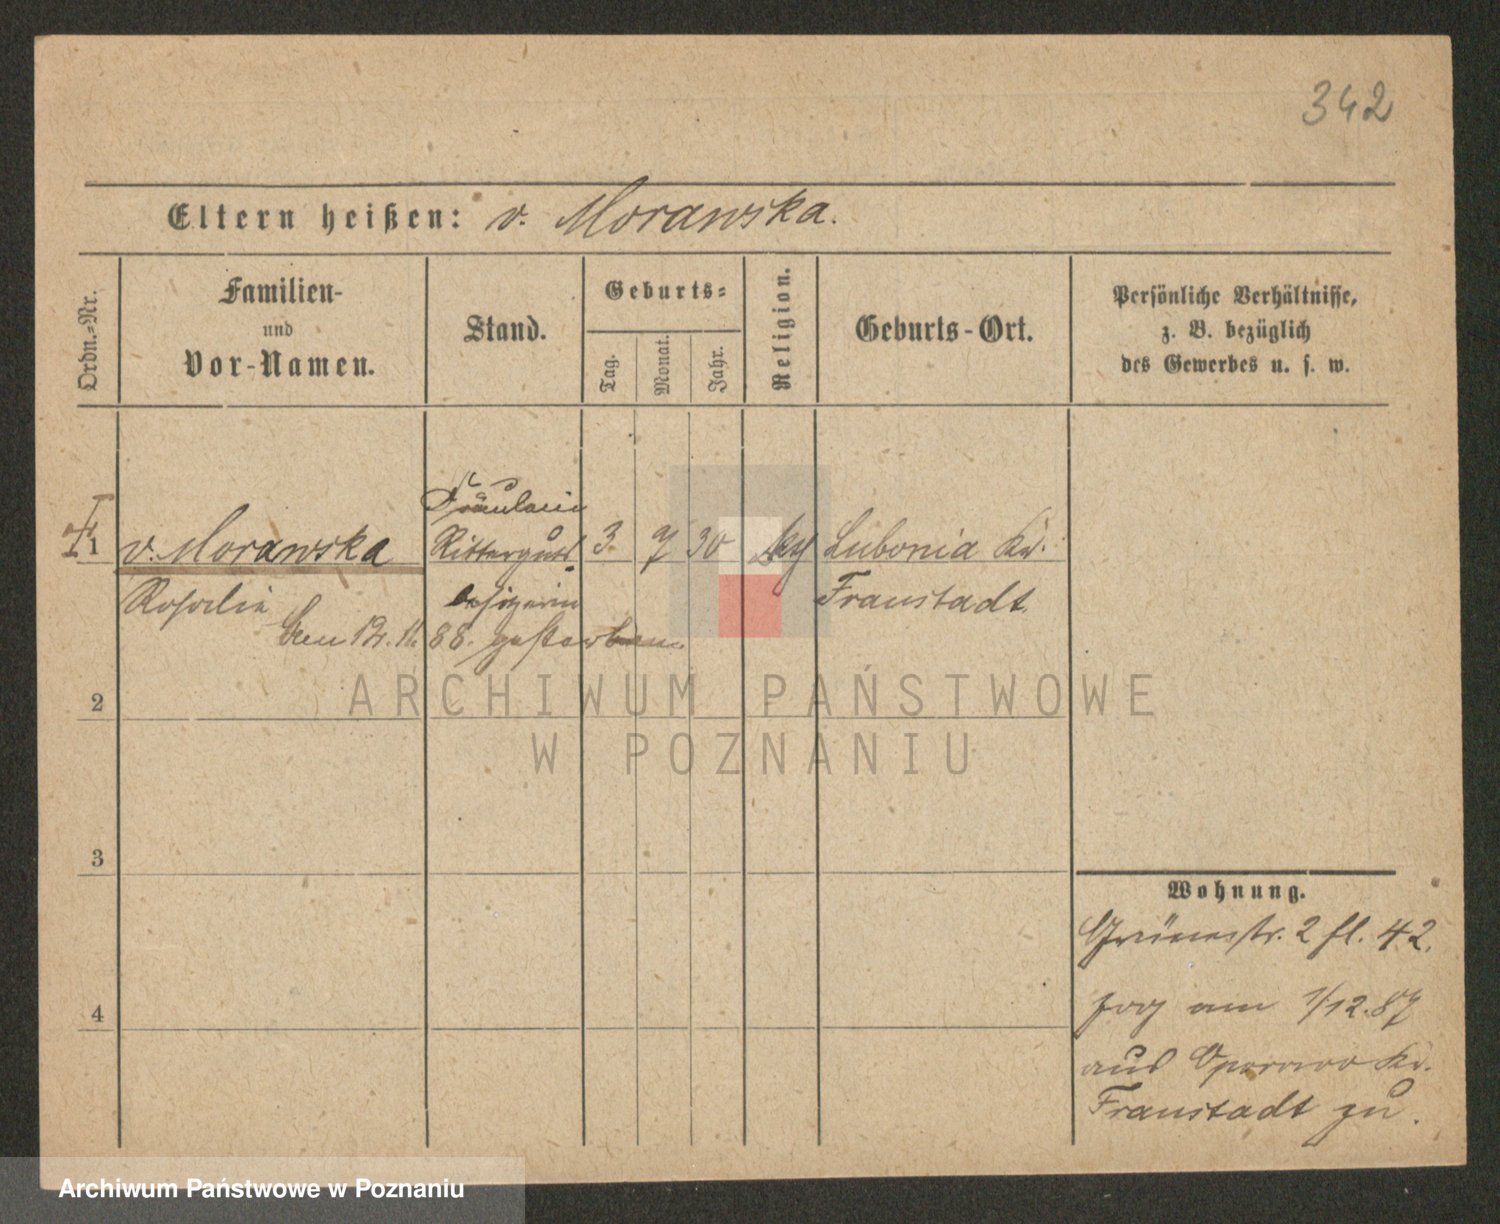 342
Eltern heißen: v. Morawska.
Ordn.-Nr.
Familien-
und
Vor-Namen.
Stand.
Geburts-
Tag.
Monat.
Jahr.
Religion.
Geburts-Ort.
Persönliche Verhältnisse,
z. B. bezüglich
des Gewerbes u. s. w.
1 v. Morawska
Rosalie
Fräulein
Ritterguts-
besitzerin
3. 9 30
Lubonia Kr.
Fraustadt.
den 12. 11. 88. gestorben.
2
3
4
Wohnung.
Grünestr. 2 fl. 42.
zog am 1/12.87
aus Oporowo Kr.
Fraustadt zu.
ARCHIWUM PAŃSTWOWE
W POZNANIU
Archiwum Państwowe w Poznaniu